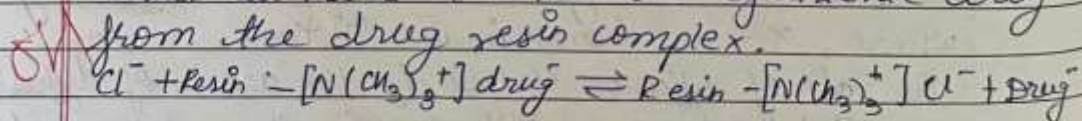 from the drug resin complex.
Cl⁻ + Resin - [N(CH₃)₃⁺] drug⁻ ⇌ Resin - [N(CH₃)₃⁺] Cl⁻ + Drug⁻